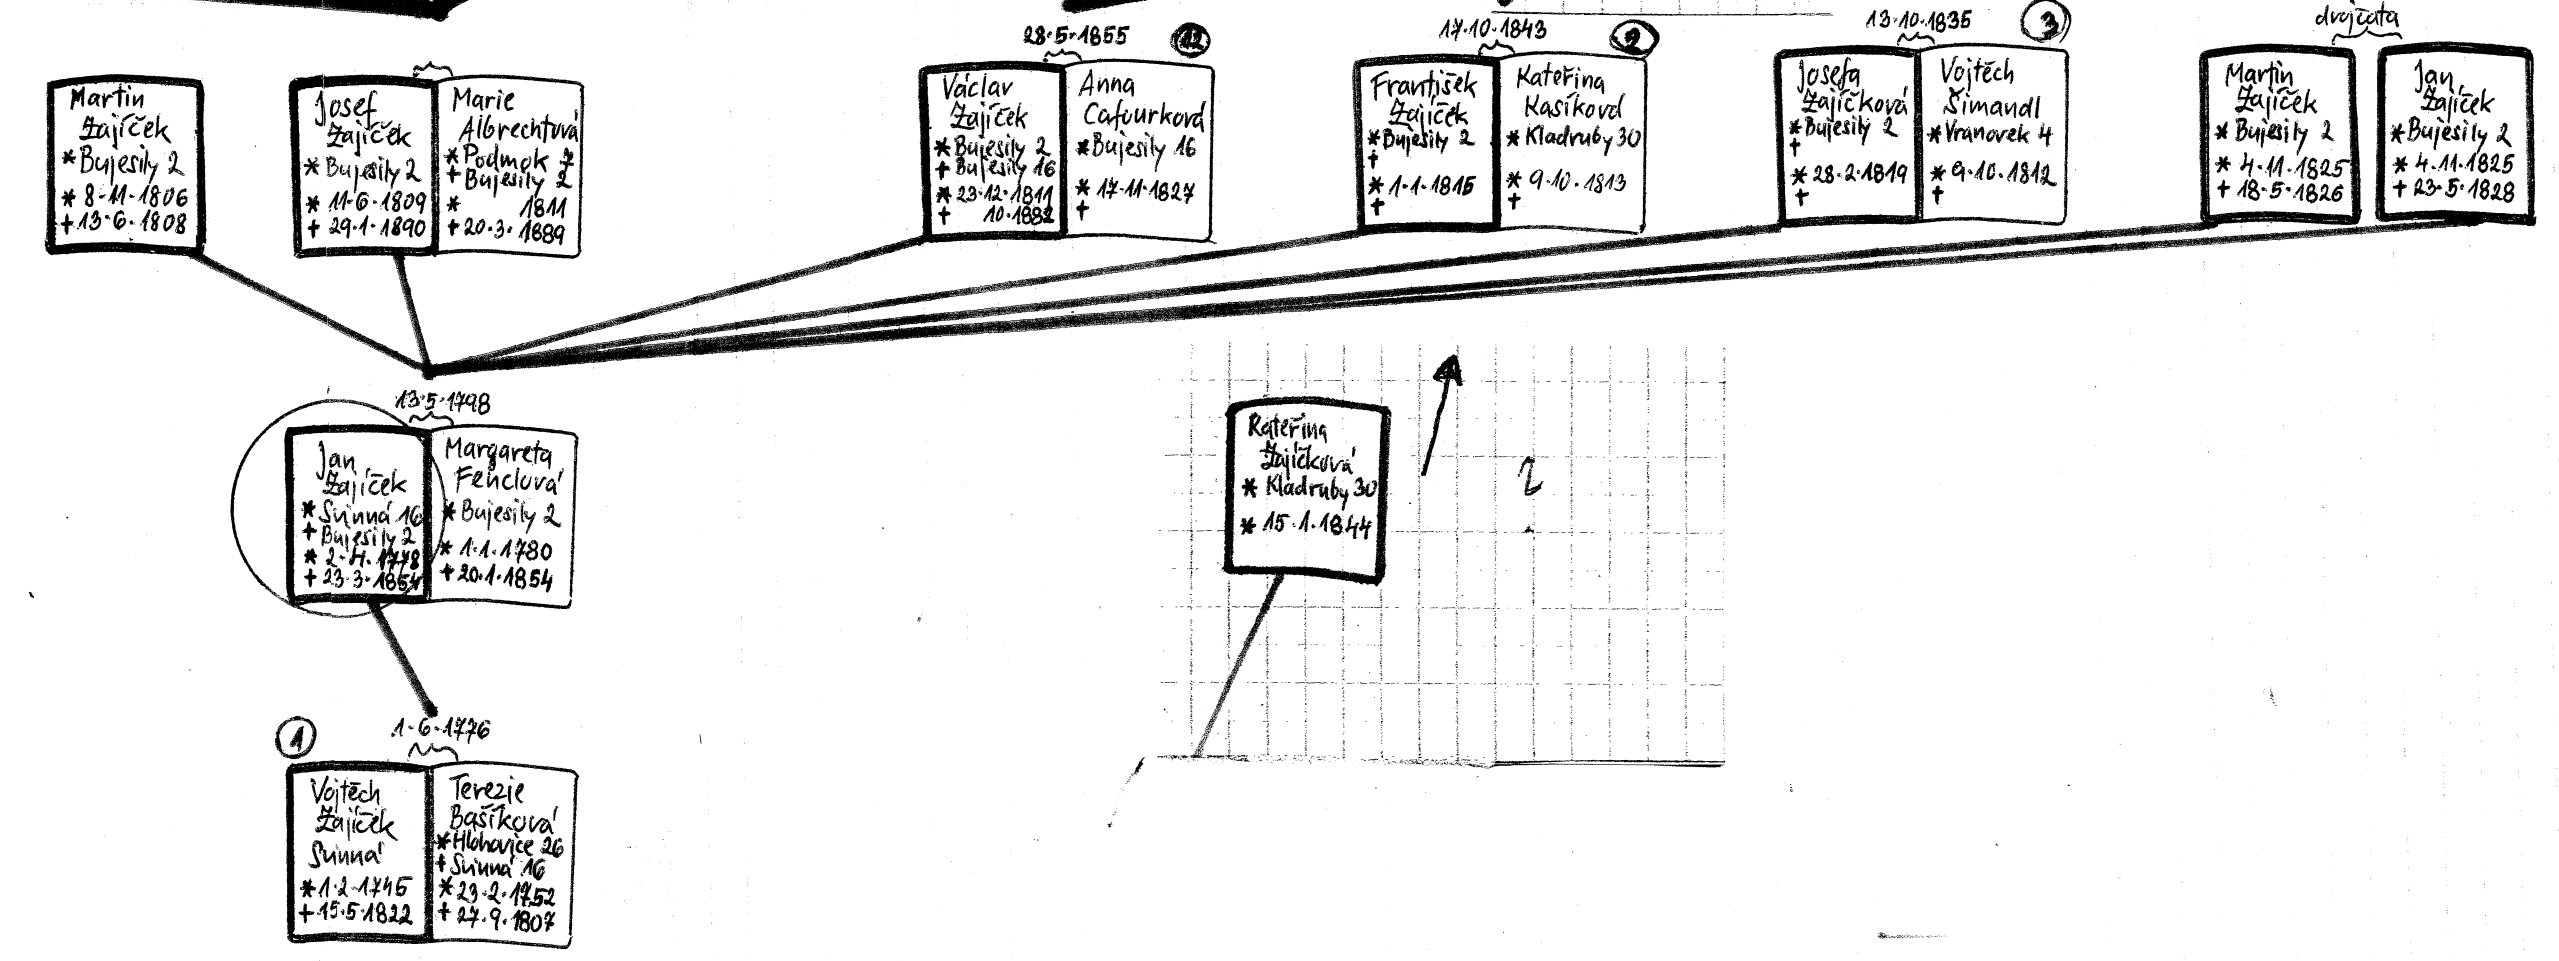 Martin
Zajíček
* Bujesily 2
* 8.11.1806
+ 13.6.1808
Josef
Zajíček
* Bujesily 2
* 11.6.1809
+ 29.1.1890
Marie
Albrechtová
* Podmok 7
+ Bujesily 2
* 1811
+ 20.3.1889
28.5.1855
12
Václav
Zajíček
* Bujesily 2
+ Bujesily 16
* 23.12.1811
+ 10.1882
Anna
Cafourková
* Bujesily 16
* 17.11.1827
+
17.10.1843
9
František
Zajíček
* Bujesily 2
+
* 1.1.1815
+
Kateřina
Kasíková
* Kladruby 30
* 9.10.1813
+
13.10.1835
3
Josefa
Zajíčková
* Bujesily 2
+
* 28.2.1819
+
Vojtěch
Šimandl
* Vranovek 4
* 9.10.1812
+
dvojčata
Martin
Zajíček
* Bujesily 2
* 4.11.1825
+ 18.5.1826
Jan
Zajíček
* Bujesily 2
* 4.11.1825
+ 23.5.1828
13.5.1798
Jan
Zajíček
* Svinná 16
+ Bujesily 2
* 2.4.1778
+ 23.3.1854
Margareta
Fenclová
* Bujesily 2
* 1.1.1780
+ 20.1.1854
Kateřina
Zajíčková
* Kladruby 30
* 15.1.1844
?
1
1.6.1776
Vojtěch
Zajíček
Svinná
* 1.2.1745
+ 15.5.1822
Terezie
Bašíková
* Hlohovice 26
+ Svinná 16
* 23.2.1752
+ 27.9.1807